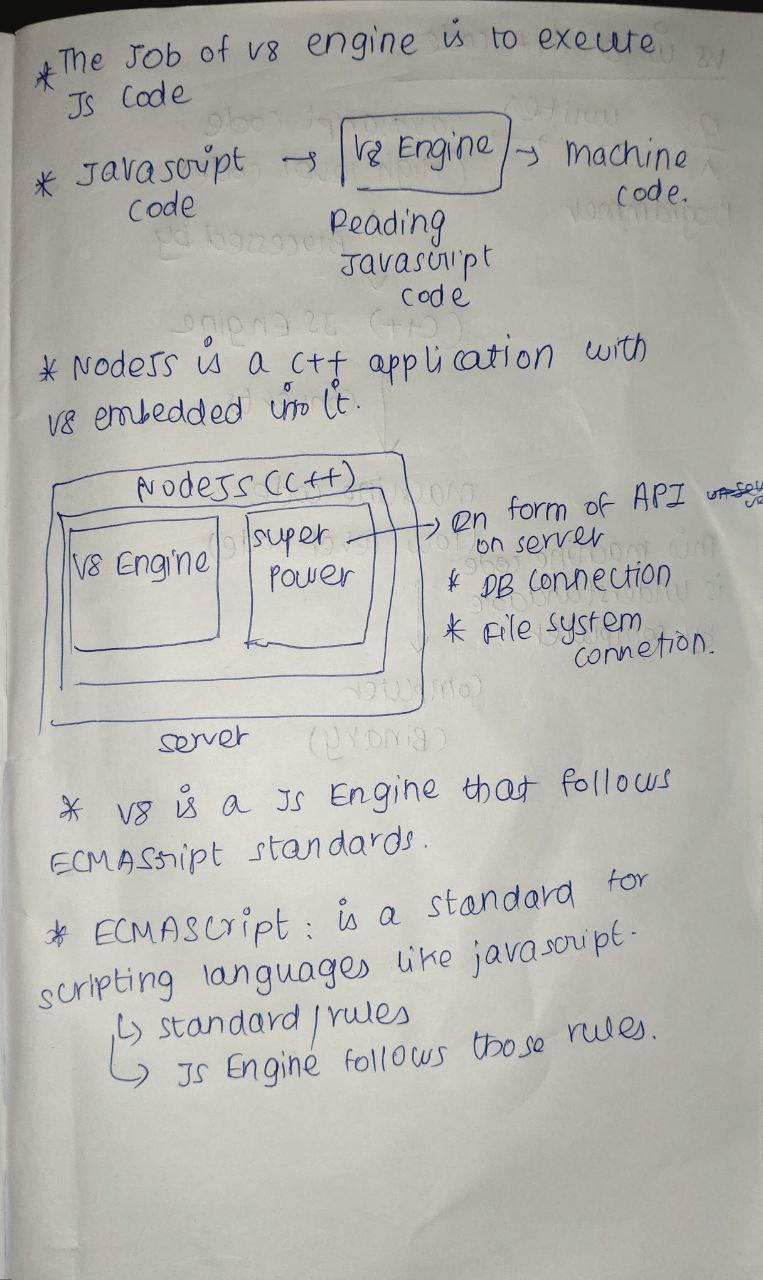 * The Job of V8 engine is to execute
JS Code
* Javascript code → V8 Engine → Machine code.
Reading
Javascript
code
* NodeJS is a C++ application with
V8 embedded into it.
NodeJS (C++)
V8 Engine
super
power
→ en form of API
on server
* DB connection
* File system
connetion.
server
* V8 is a JS Engine that follows
ECMAScript standards.
* ECMAScript : is a standard for
scripting languages like javascript.
↳ standard/rules
↳ JS Engine follows those rules.